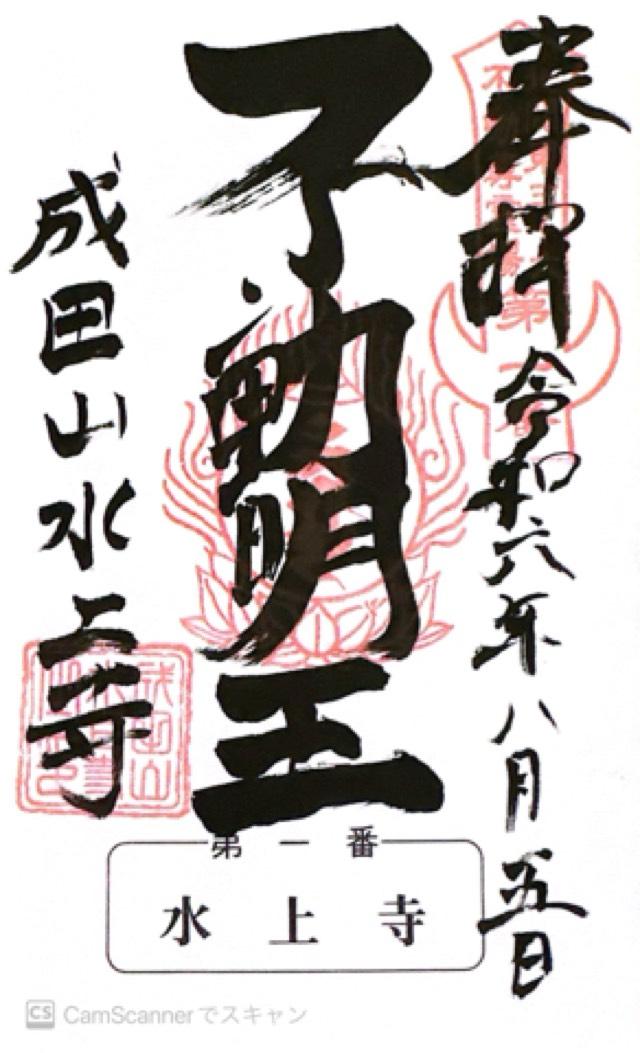 奉拝
令和六年八月五日
不動明王
成田山水上寺
第一番
水上寺
CS CamScannerでスキャン